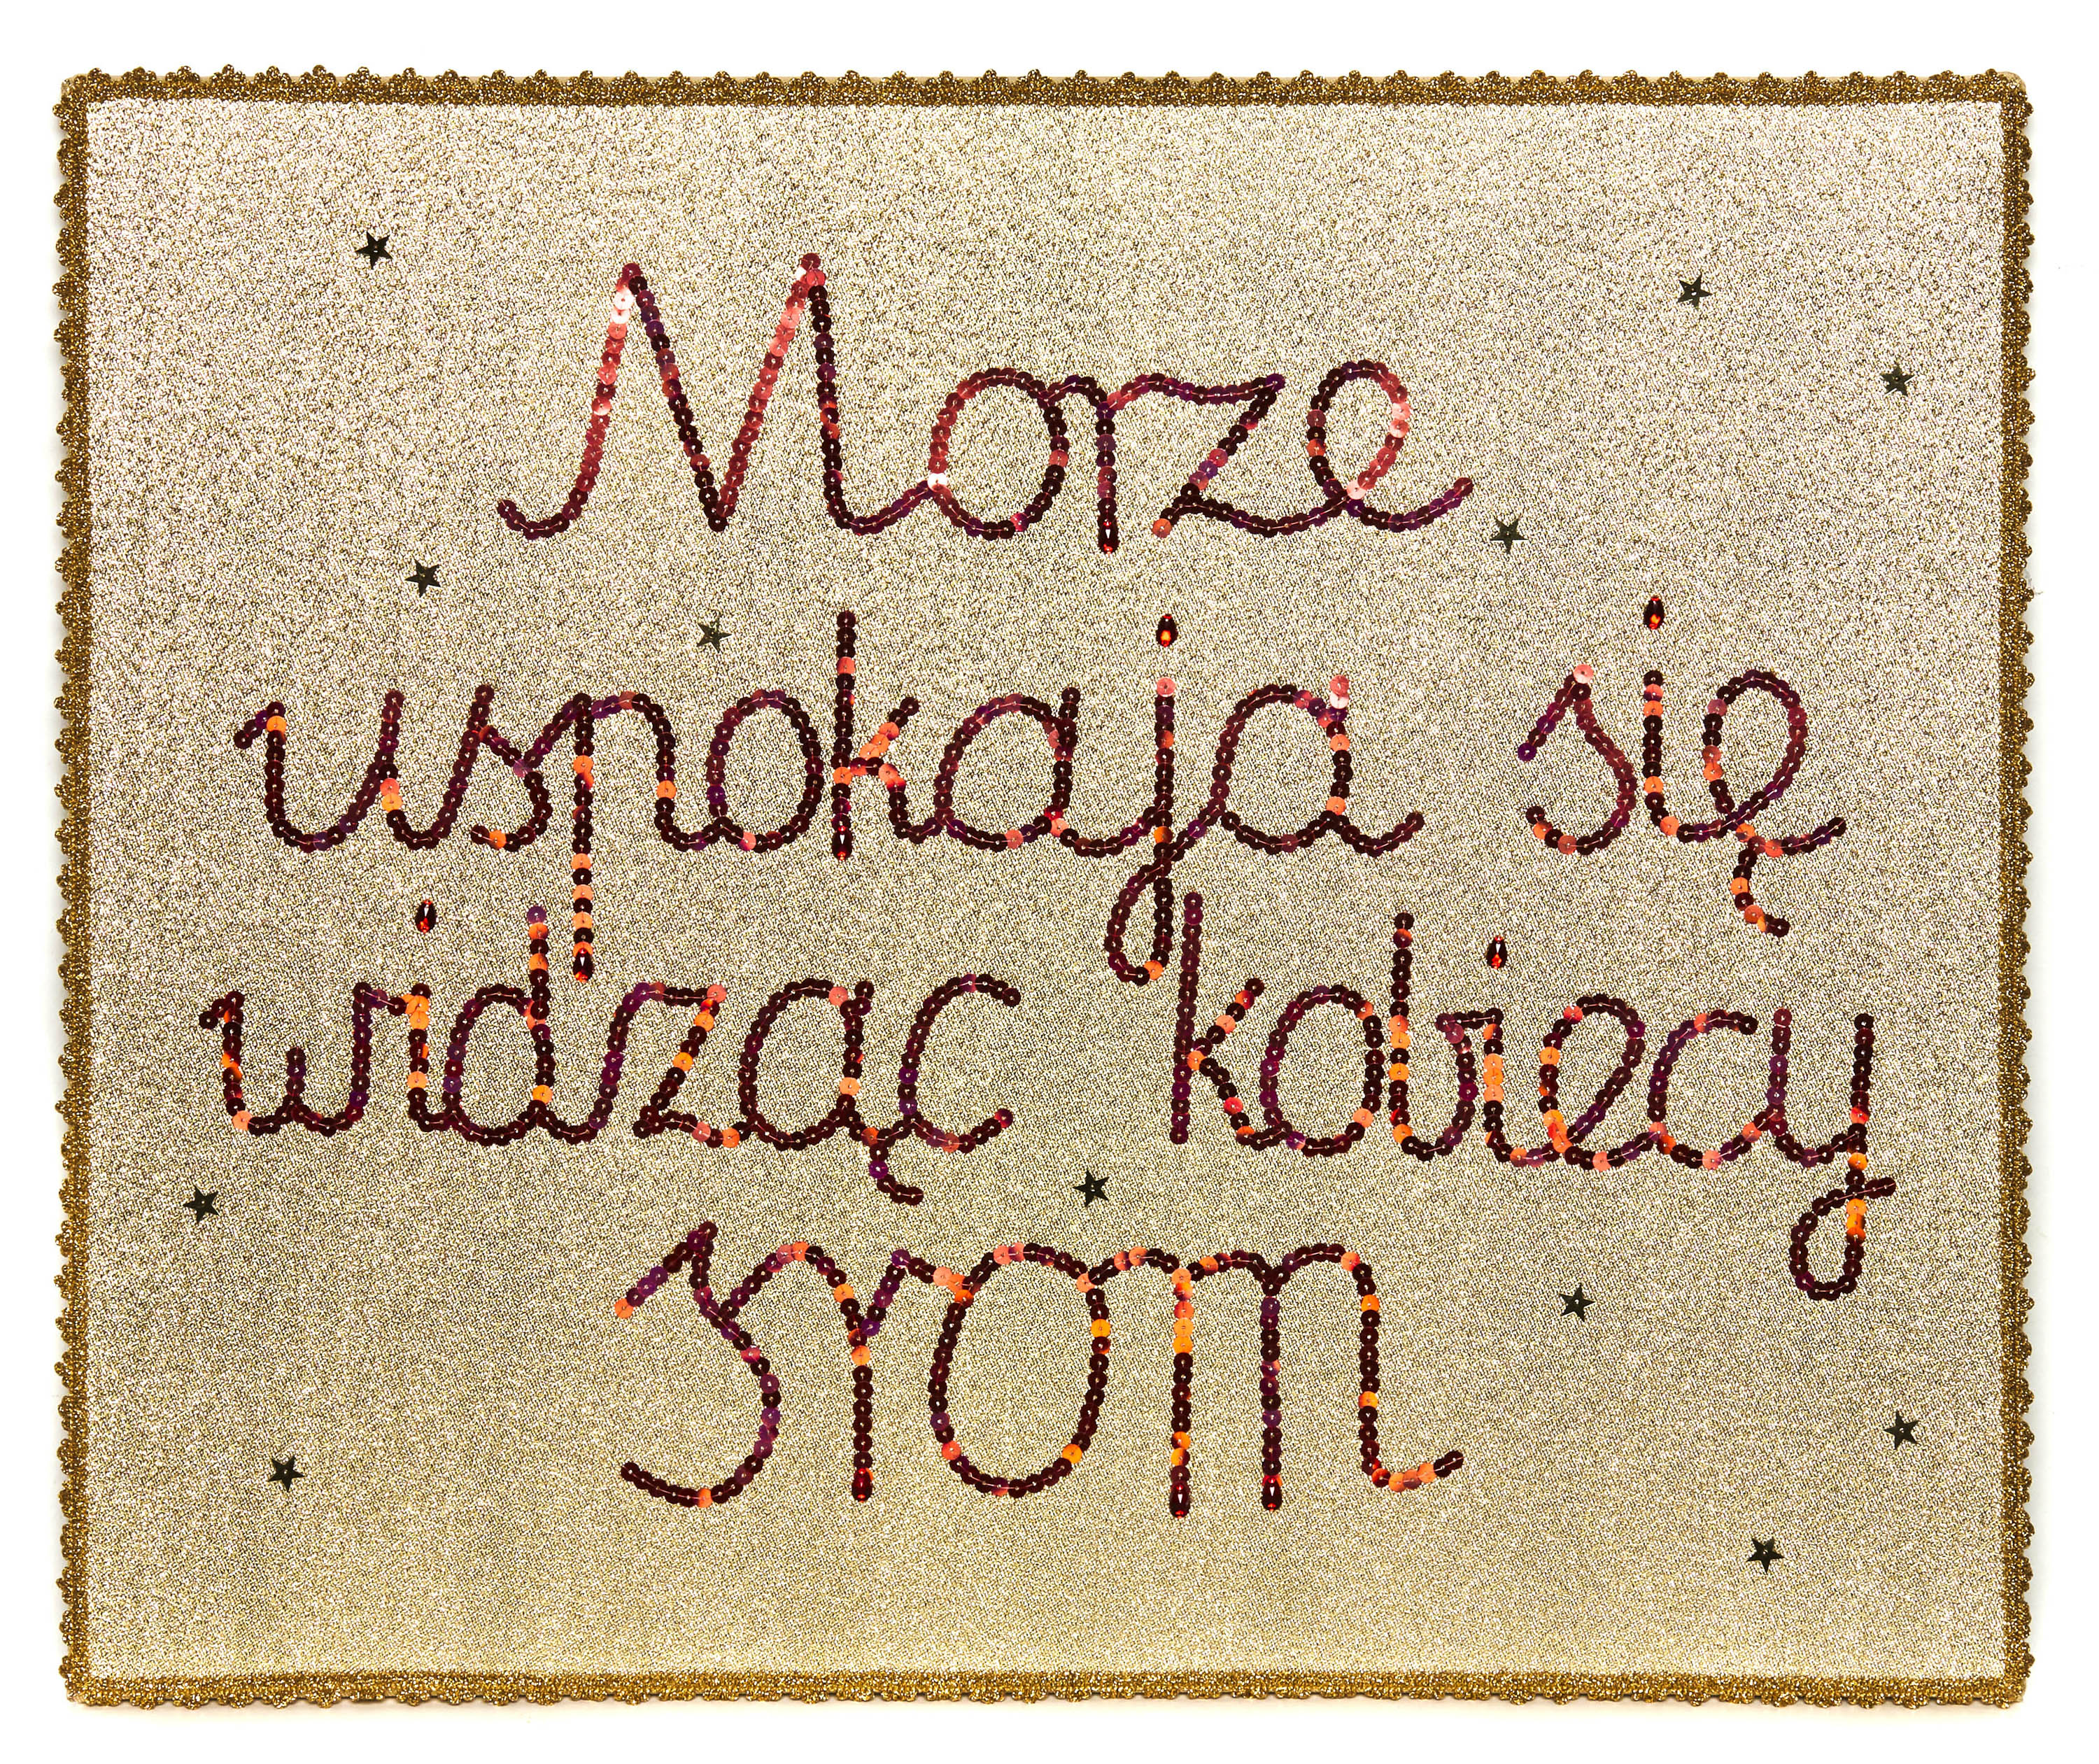 Morze
uspokaja się
widząc kobiecy
srom